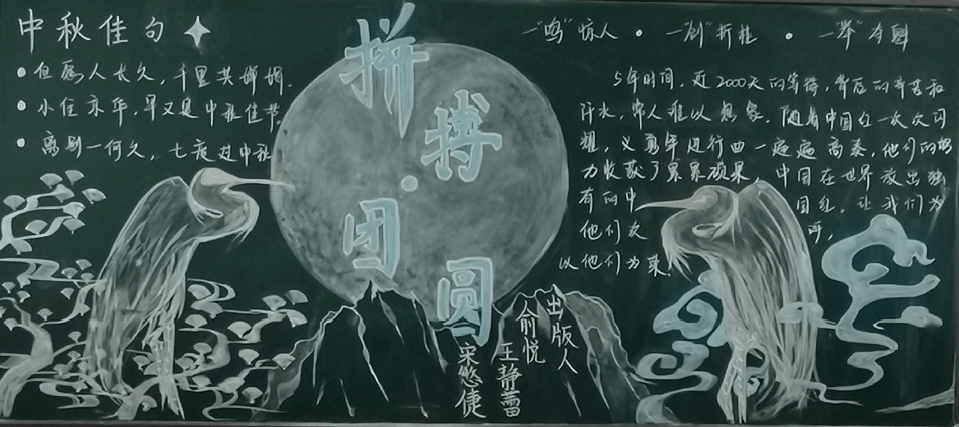 中秋佳句
但愿人长久，千里共婵娟．
小住京华，早又是中秋佳节．
离别一何久，七度过中秋
拼搏·团圆
一"鸣"惊人·一"剑"折桂·一"举"夺魁
5年时间，近2000天的等待，背后的辛苦和
汗水，常人难以想象．随着中国红一次次闪
耀，义勇军进行曲一遍遍高奏，他们的努
力收获了累累硕果，中国在世界放出独
有的中国红，让我们为
他们欢呼，
以他们为荣！
出版人
俞悦
王静蕾
宋悠倢